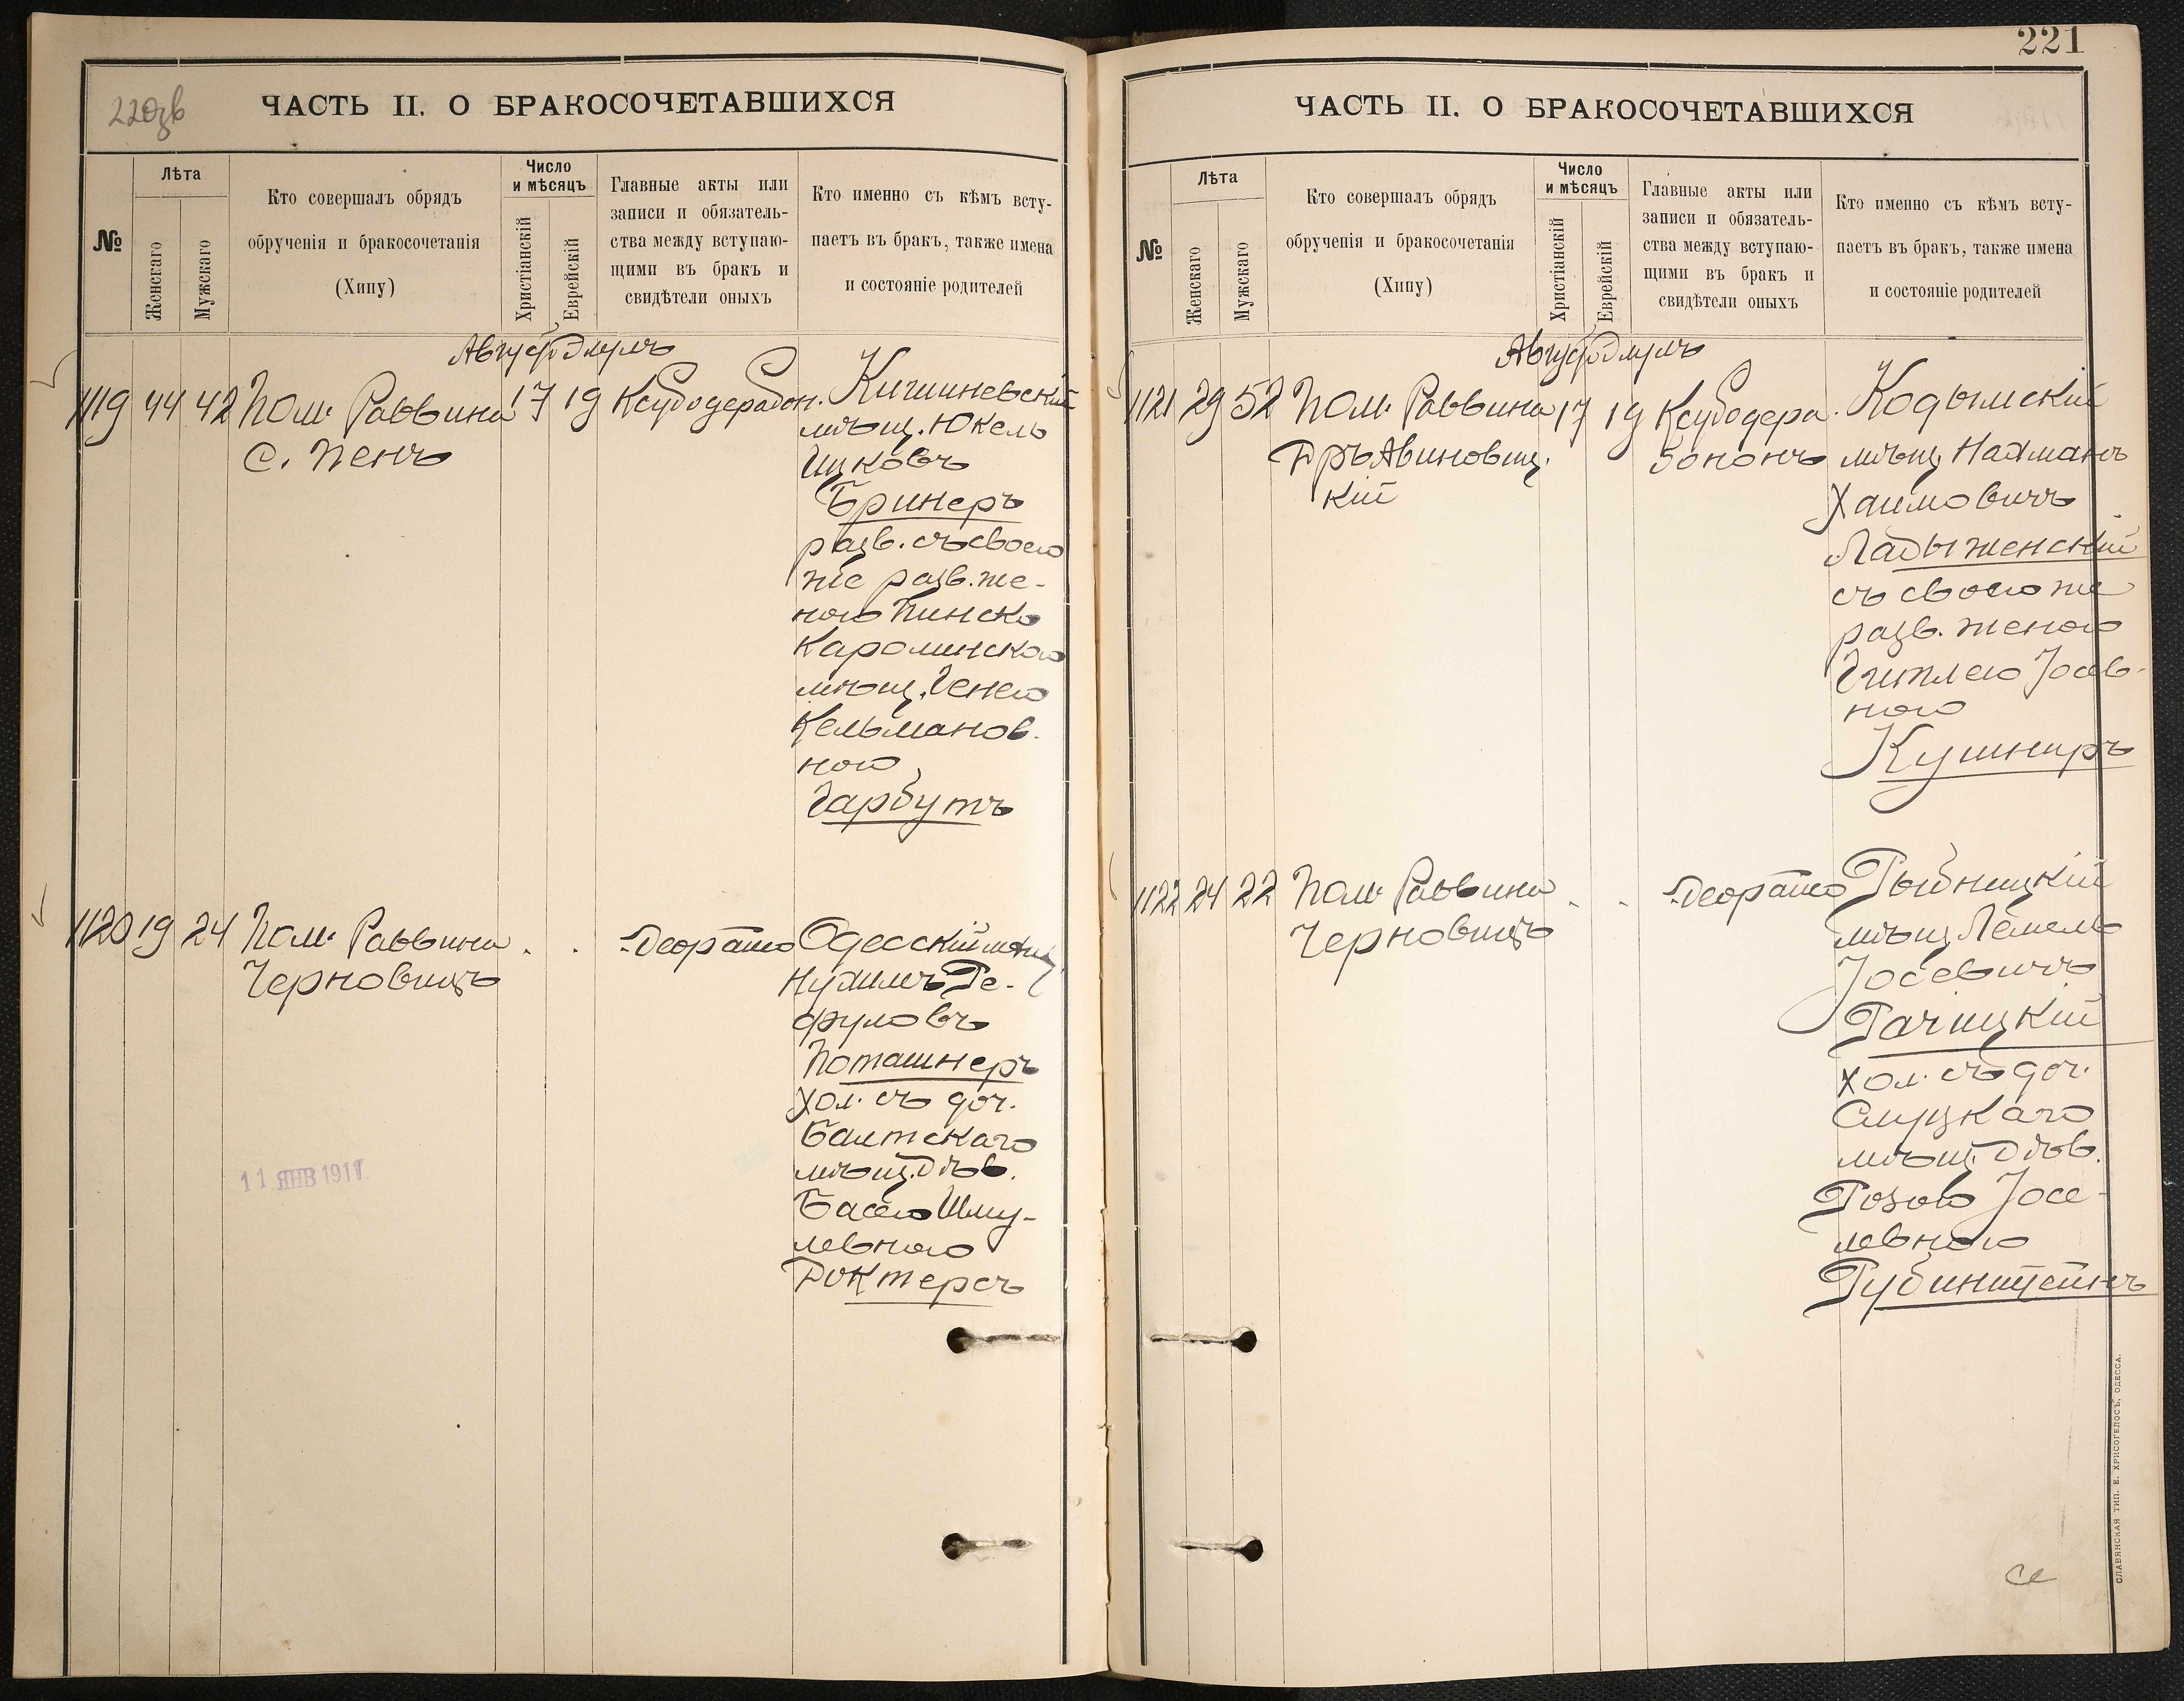 220зв
ЧАСТЬ II. О БРАКОСОЧЕТАВШИХСЯ
№
Лѣта
Женскаго
Мужскаго
Кто совершалъ обрядъ
обрученія и бракосочетанія
(Хипу)
Число
и мѣсяцъ
Христіанскій
Еврейскій
Главные акты или
записи и обязатель-
ства между вступаю-
щими въ бракъ и
свидѣтели оныхъ
Кто именно съ кѣмъ всту-
паетъ въ бракъ, также имена
и состояніе родителей
1119 44 42 Пом. Раввина 17 19 Кишиневскій
С. Пенъ
мѣщ. Юкель
Ицковъ
Бринеръ
разв. съ своею
же разв. же-
ною Пинско
Каролинскою
мѣщ. Генею
Кельманов-
ною
Гарбутъ
1120 19 24 Пом. Раввина Одесскій мѣщ.
Черновицъ
Нухимъ Ре-
фуловъ
Поташнеръ
хол. съ доч.
Балтскаго
мѣщ. Дѣв.
Басею Шму-
левною
Доктерсъ
11 ЯНВ 1911
221
ЧАСТЬ II. О БРАКОСОЧЕТАВШИХСЯ
№
Лѣта
Женскаго
Мужскаго
Кто совершалъ обрядъ
обрученія и бракосочетанія
(Хипу)
Число
и мѣсяцъ
Христіанскій
Еврейскій
Главные акты или
записи и обязатель-
ства между вступаю-
щими въ бракъ и
свидѣтели оныхъ
Кто именно съ кѣмъ всту-
паетъ въ бракъ, также имена
и состояніе родителей
1121 29 52 Пом. Раввина 17 19 Кодымскій
Дръ Авиновиц-
кій
мѣщ. Нахманъ
Хаимовичъ
Ладыженскій
съ своею же
разв. женою
Гитлею Іосев-
ною
Кушниръ
1122 24 22 Пом. Раввина Рыбницкій
Черновицъ
мѣщ. Лемель
Іосевичъ
Рачицкій
хол. съ доч.
Слуцкаго
мѣщ. Дѣв.
Розою Іосе-
левною
Рубинштейнъ
СЛАВЯНСКАЯ ТИП. Е. ХРИСОГЕЛОСЪ, ОДЕССА.